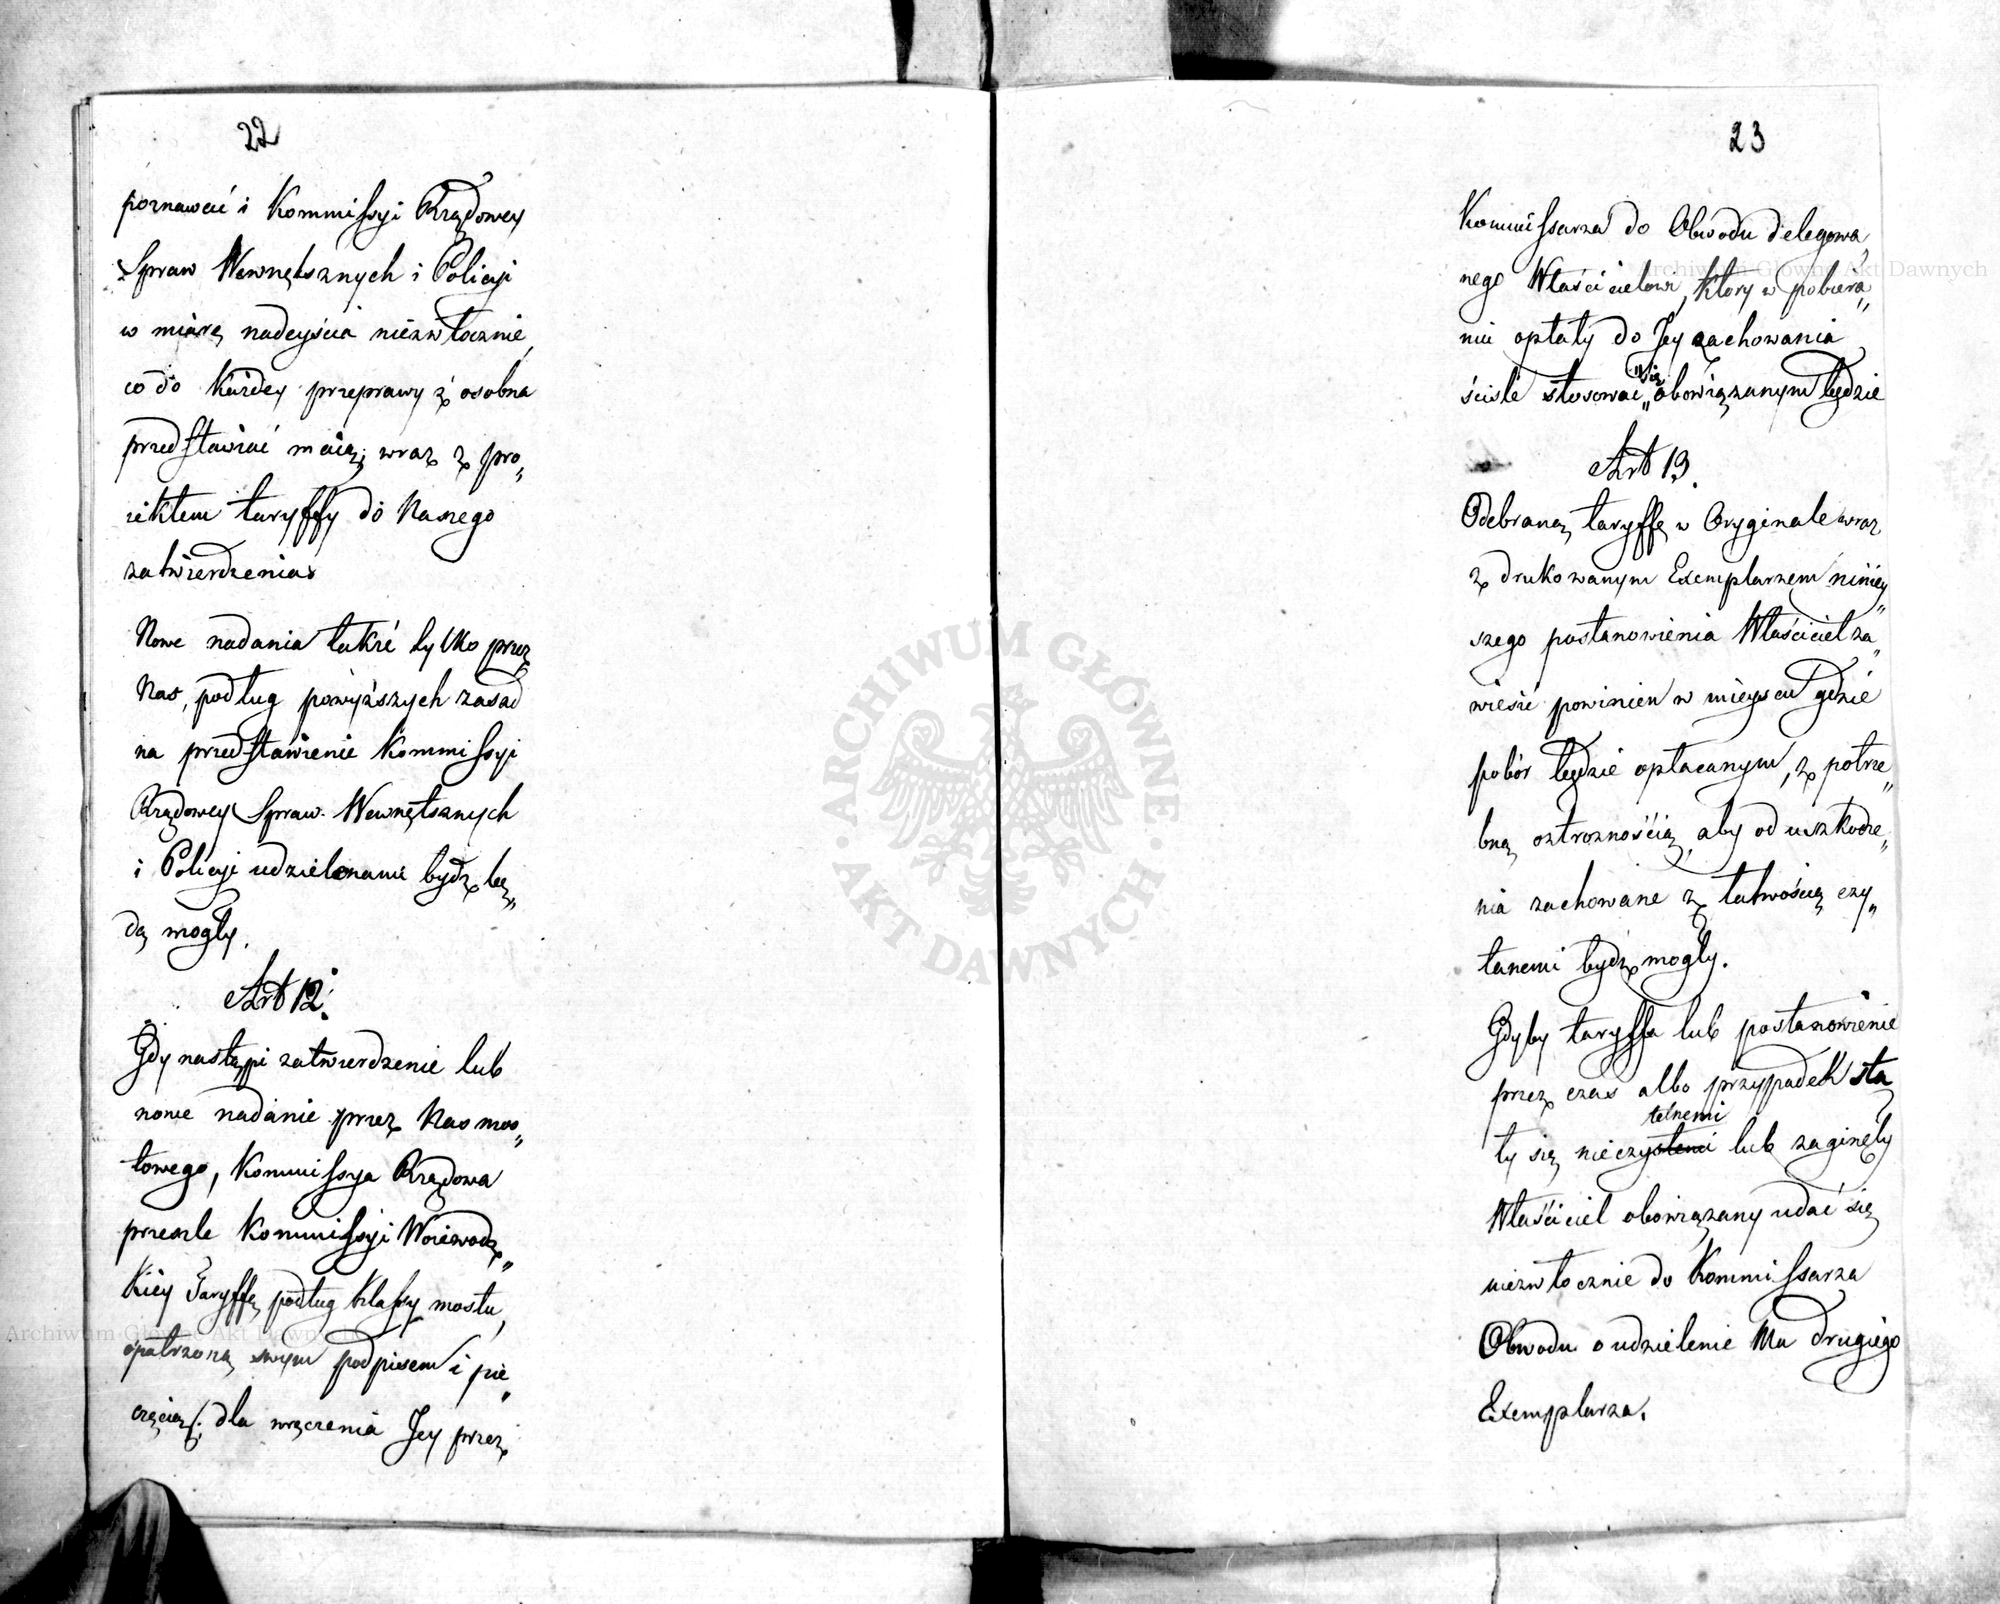 22
poznawać i Kommissyi Rządowey
Spraw Wewnętsznych i Policyi
w miarę nadeyścia niezwłocznie,
co do każdey przeprawy z osobna
przedstawiać maią, wraz z pro„
iektem taryffy do Naszego
zatwierdzenia
Nowe nadania takżé tylko przez
Nas, podług powyższych zasad
na przedstawienie Kommissyi
Rządowey Spraw Wewnętsznych
i Policyi udzielonemi bydź bę„
dą mogły.
Art 12.
Gdy nastąpi zatwierdzenie lub
nowe nadanie przez Nas mos„
towego, Kommissya Rządowa
prześle Kommissyi Woiewodz„
kiéy Taryffę podług klassy mostu,
opatrzoną swym podpisem i pie„
częcią, dla wręczenia Jey przez
23
Kommissarza do Obwodu delegowa„
nego Właścicielowi, ktory w pobiera„
niu opłaty do Jey zachowania
ściśle stosować się obowiązanym będzie
Art 13.
Odebraną taryffę w Oryginale wraz
z drukowanym Exemplarzem niniey„
szego postanowienia Właściciel za„
wiesić powinien w mieyscu gdzie
pobór będzie opłacanym, z potrze„
bną ostrożnością, aby od uszkodze„
nia zachowane z łatwością czy„
tanemi bydź mogły.
Gdyby taryffa lub postanowienie
przez czas albo przypadek sta
telnemi
ły się nieczystemi lub zaginęły
Właściciel obowiązany udać się
niezwłocznie do Kommissarza
Obwodu o udzielenie Mu drugiego
Exemplarza.
Archiwum Główne Akt Dawnych
Archiwum Główne Akt Dawnych
ARCHIWUM GŁÓWNE · AKT DAWNYCH ·